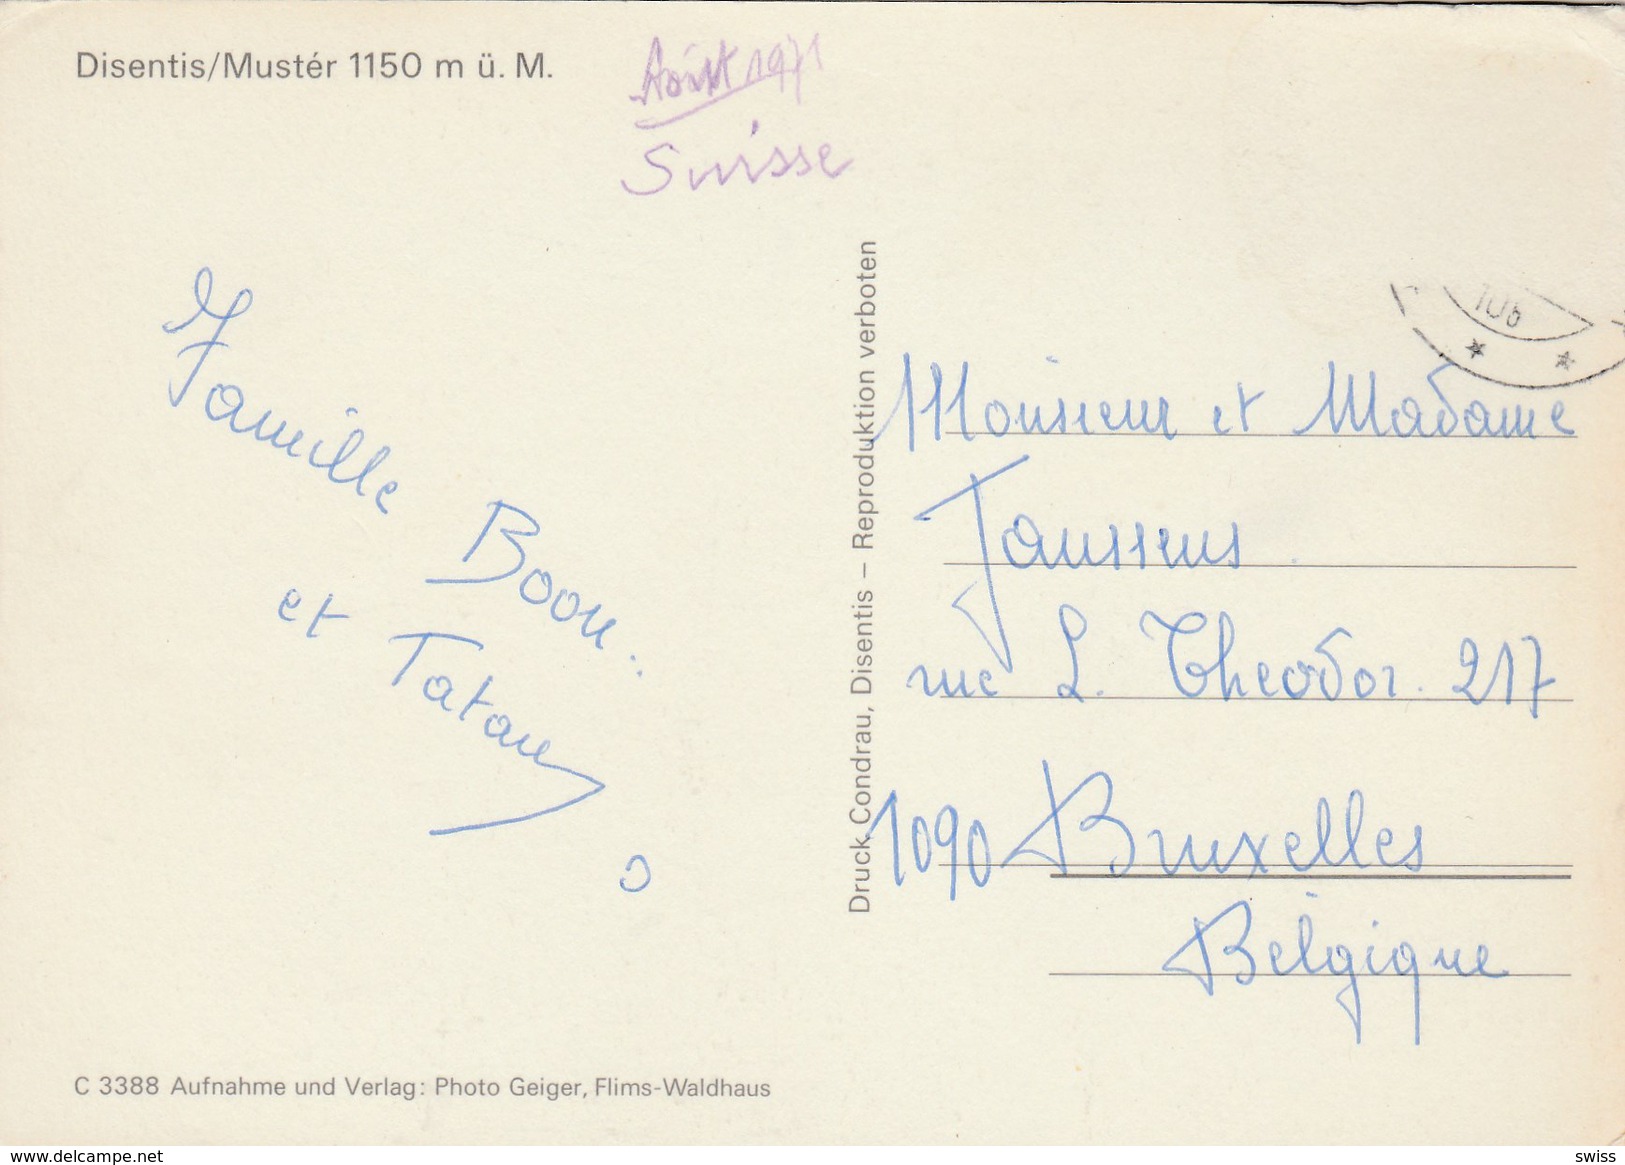 Disentis/Mustér 1150 m ü. M.
Août 1971
Suisse
Famille Boon.
et Tatan
Druck Condrau, Disentis – Reproduktion verboten
106
Monsieur et Madame
Janssens
rue L. Theodor. 217
1090 Bruxelles
Belgique
C 3388 Aufnahme und Verlag: Photo Geiger, Flims-Waldhaus
www.delcampe.net
swiss